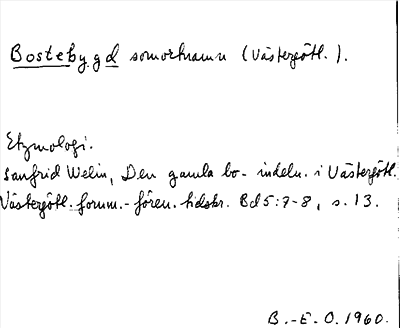 Bostebygd somortnamn (Västergötl.).
Etymologi.
Sanfrid Welin, Den gamla bo-indeln. i Västergötl.
Västergötl. fornm.-fören. tidskr. Bd 5:7-8, s. 13.
B.-E. O. 1960.